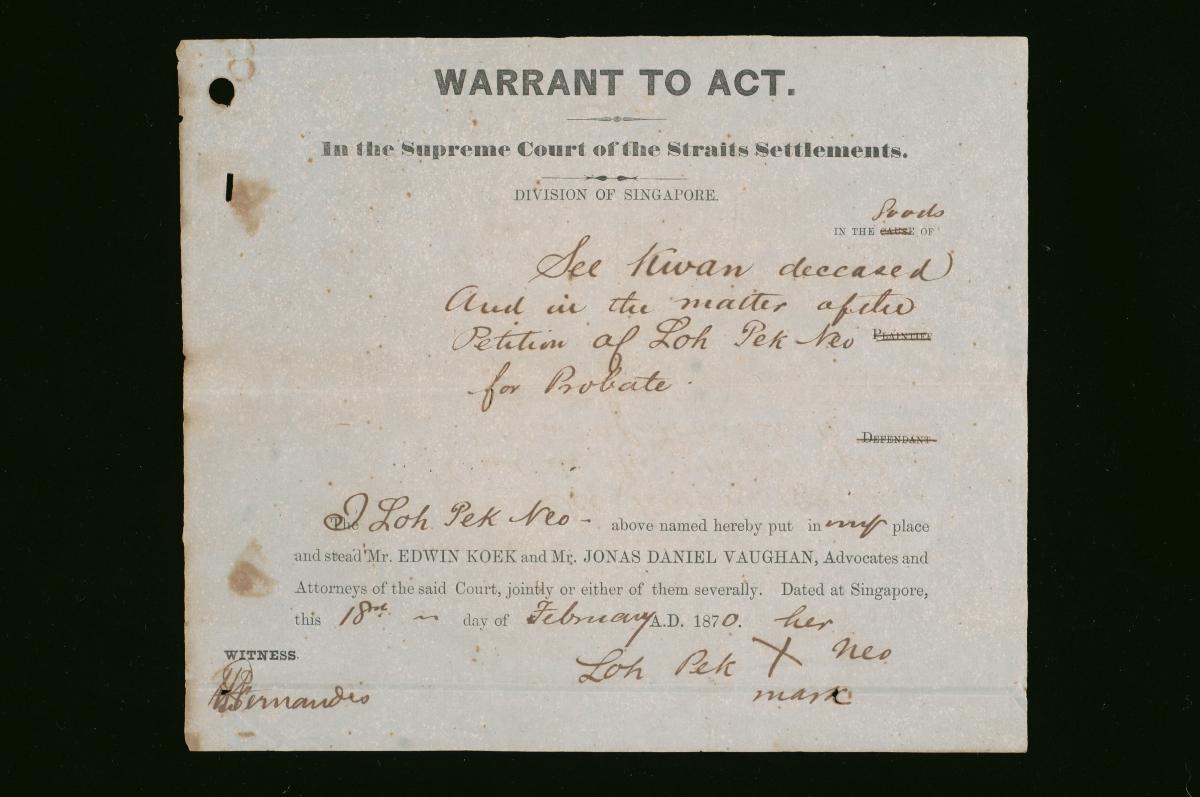 WARRANT TO ACT.
In the Supreme Court of the Straits Settlements.
DIVISION OF SINGAPORE.
Goods
IN THE CAUSE OF
See Kwan deceased
And in the matter of the
Petition of Loh Pek Neo PLAINTIFF
for Probate.
DEFENDANT
The I Loh Pek Neo - above named hereby put in my place
and stead Mr. EDWIN KOEK and Mr. JONAS DANIEL VAUGHAN, Advocates and
Attorneys of the said Court, jointly or either of them severally. Dated at Singapore,
this 18th day of February A.D. 1870. her
WITNESS.
Loh Pek X Neo
mark
Fernandis